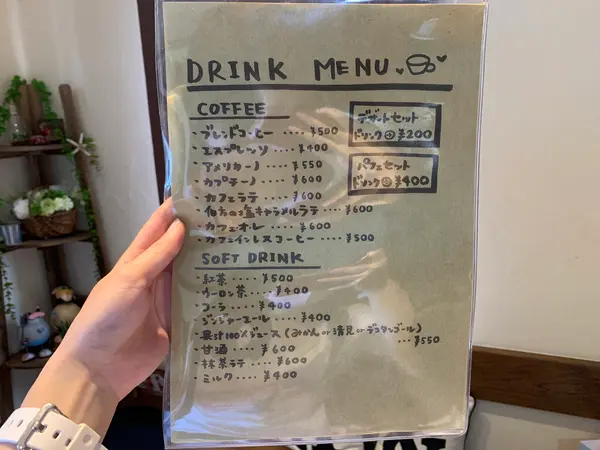 DRINK MENU
COFFEE
・ブレンドコーヒー ‥‥ ¥500
・エスプレッソ ‥‥ ¥400
・アメリカーノ ‥‥ ¥550
・カプチーノ ‥‥ ¥600
・カフェラテ ‥‥ ¥600
・伯方の塩キャラメルラテ ‥‥ ¥600
・カフェオ・レ ‥‥ ¥600
・カフェインレスコーヒー ‥‥ ¥500
デザートセット
ドリンク⊕¥200
パフェセット
ドリンク⊕¥400
SOFT DRINK
・紅茶 ‥‥ ¥500
・ウーロン茶 ‥‥ ¥400
・コーラ ‥‥ ¥400
・ジンジャーエール ‥‥ ¥400
・果汁100%ジュース(みかん or 清見 or デコタンゴール)
‥‥ ¥550
・甘酒 ‥‥ ¥600
・抹茶ラテ ‥‥ ¥600
・ミルク ‥‥ ¥400